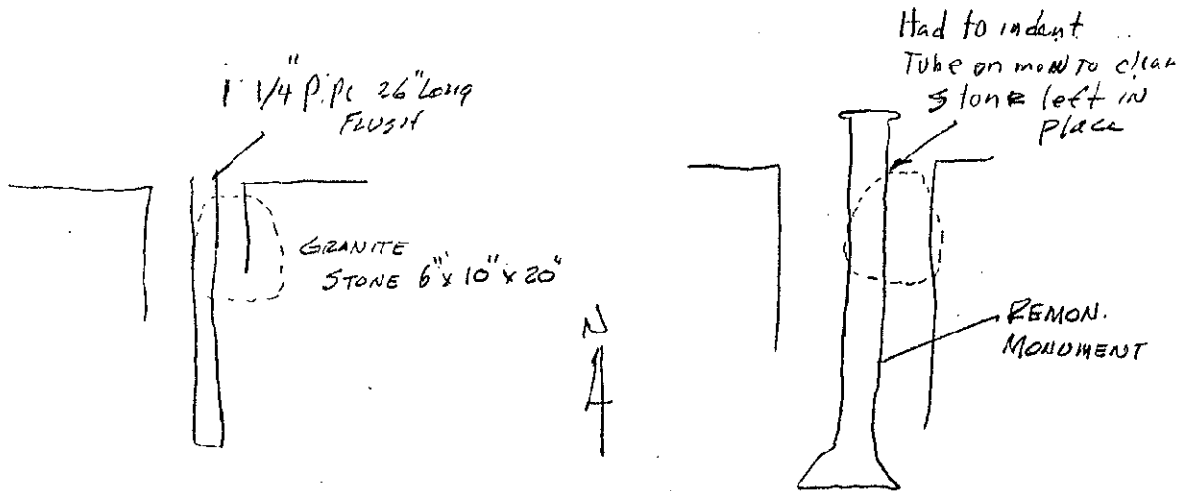 1 1/4" Pipe 26" Long
FLUSH
GRANITE
STONE 6" x 10" x 20"
N
Had to indent
Tube on mon to clear
stone left in
place
REMON.
MONUMENT